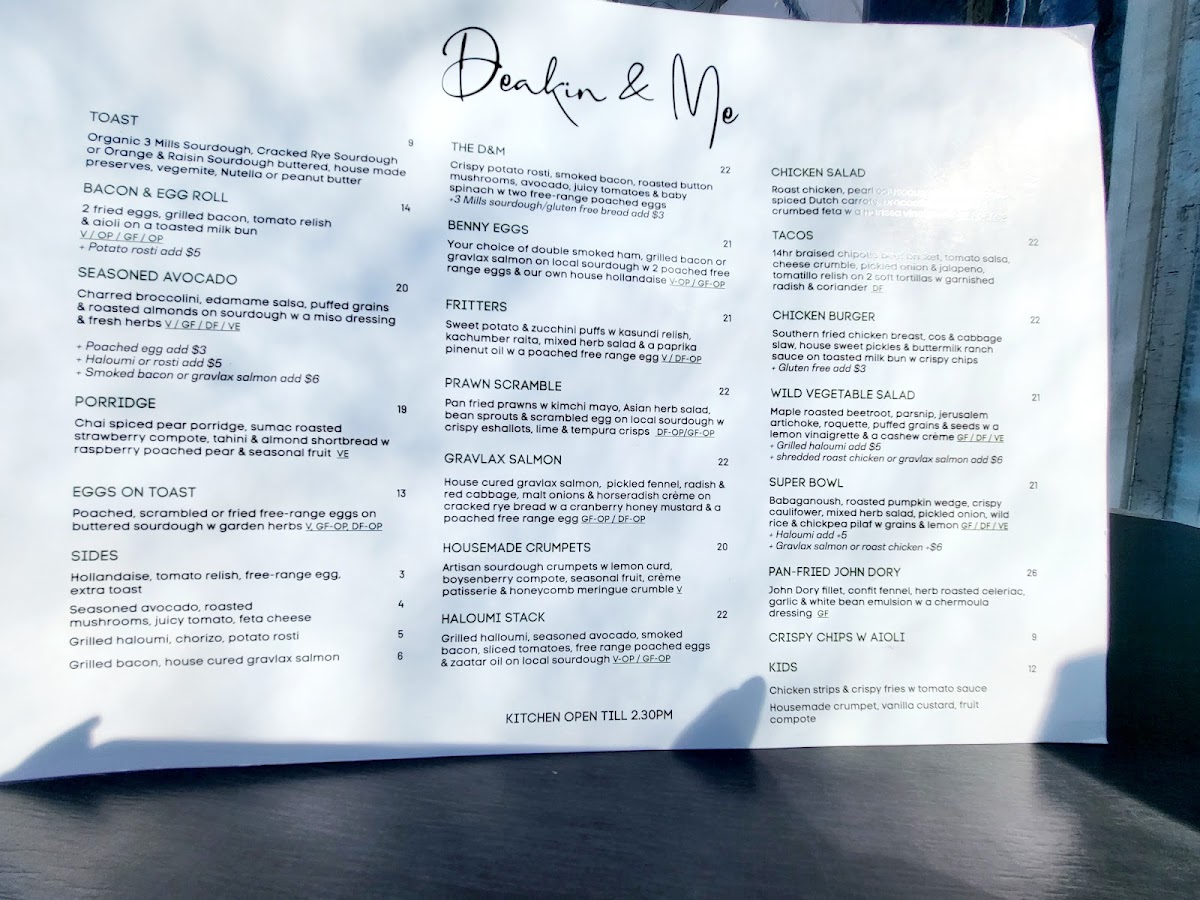 Deakin & Me
TOAST
9
Organic 3 Mills Sourdough, Cracked Rye Sourdough
or Orange & Raisin Sourdough buttered, house made
preserves, vegemite, Nutella or peanut butter
BACON & EGG ROLL
14
2 fried eggs, grilled bacon, tomato relish
& aioli on a toasted milk bun
V / OP / GF / OP
+ Potato rosti add $5
SEASONED AVOCADO
20
Charred broccolini, edamame salsa, puffed grains
& roasted almonds on sourdough w a miso dressing
& fresh herbs V / GF / DF / VE
+ Poached egg add $3
+ Haloumi or rosti add $5
+ Smoked bacon or gravlax salmon add $6
PORRIDGE
19
Chai spiced pear porridge, sumac roasted
strawberry compote, tahini & almond shortbread w
raspberry poached pear & seasonal fruit VE
EGGS ON TOAST
13
Poached, scrambled or fried free-range eggs on
buttered sourdough w garden herbs V, GF-OP, DF-OP
SIDES
Hollandaise, tomato relish, free-range egg, 3
extra toast
Seasoned avocado, roasted 4
mushrooms, juicy tomato, feta cheese
Grilled haloumi, chorizo, potato rosti 5
Grilled bacon, house cured gravlax salmon 6
THE D&M
22
Crispy potato rosti, smoked bacon, roasted button
mushrooms, avocado, juicy tomatoes & baby
spinach w two free-range poached eggs
+3 Mills sourdough/gluten free bread add $3
BENNY EGGS
21
Your choice of double smoked ham, grilled bacon or
gravlax salmon on local sourdough w 2 poached free
range eggs & our own house hollandaise V-OP / GF-OP
FRITTERS
21
Sweet potato & zucchini puffs w kasundi relish,
kachumber raita, mixed herb salad & a paprika
pinenut oil w a poached free range egg V / DF-OP
PRAWN SCRAMBLE
22
Pan fried prawns w kimchi mayo, Asian herb salad,
bean sprouts & scrambled egg on local sourdough w
crispy eshallots, lime & tempura crisps DF-OP/GF-OP
GRAVLAX SALMON
22
House cured gravlax salmon, pickled fennel, radish &
red cabbage, malt onions & horseradish crème on
cracked rye bread w a cranberry honey mustard & a
poached free range egg GF-OP / DF-OP
HOUSEMADE CRUMPETS
20
Artisan sourdough crumpets w lemon curd,
boysenberry compote, seasonal fruit, crème
patisserie & honeycomb meringue crumble V
HALOUMI STACK
22
Grilled halloumi, seasoned avocado, smoked
bacon, sliced tomatoes, free range poached eggs
& zaatar oil on local sourdough V-OP / GF-OP
KITCHEN OPEN TILL 2.30PM
CHICKEN SALAD
Roast chicken, pearl
spiced Dutch carrots,
crumbed feta w a
TACOS
22
14hr braised chipotle tomato salsa,
cheese crumble, pickled onion & jalapeno,
tomatillo relish on 2 soft tortillas w garnished
radish & coriander DF
CHICKEN BURGER
22
Southern fried chicken breast, cos & cabbage
slaw, house sweet pickles & buttermilk ranch
sauce on toasted milk bun w crispy chips
+ Gluten free add $3
WILD VEGETABLE SALAD
21
Maple roasted beetroot, parsnip, jerusalem
artichoke, roquette, puffed grains & seeds w a
lemon vinaigrette & a cashew crème GF / DF / VE
+ Grilled haloumi add $5
+ shredded roast chicken or gravlax salmon add $6
SUPER BOWL
21
Babaganoush, roasted pumpkin wedge, crispy
caulifower, mixed herb salad, pickled onion, wild
rice & chickpea pilaf w grains & lemon GF / DF / VE
+ Haloumi add +5
+ Gravlax salmon or roast chicken +$6
PAN-FRIED JOHN DORY
26
John Dory fillet, confit fennel, herb roasted celeriac,
garlic & white bean emulsion w a chermoula
dressing GF
CRISPY CHIPS W AIOLI 9
KIDS 12
Chicken strips & crispy fries w tomato sauce
Housemade crumpet, vanilla custard, fruit
compote